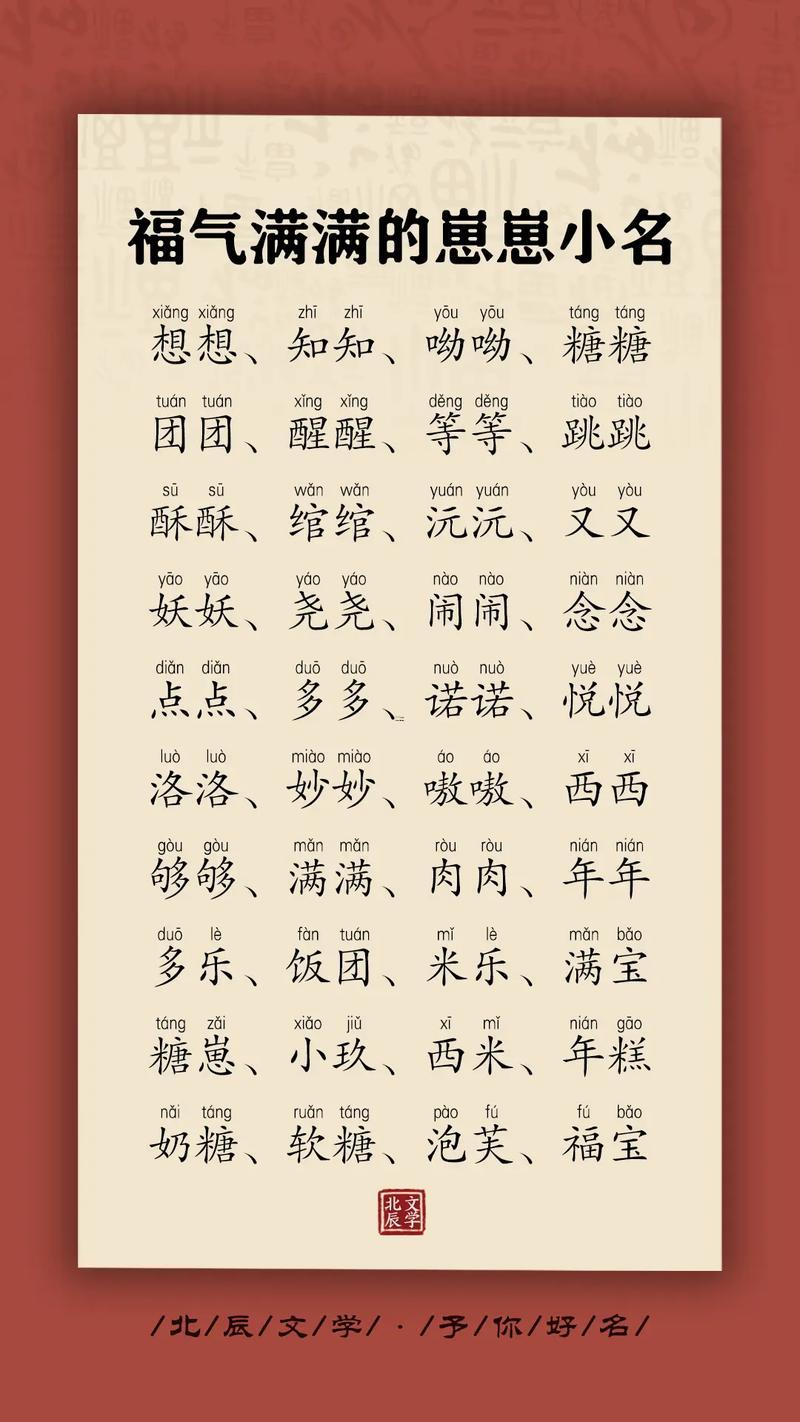 福气满满的崽崽小名
xiǎng xiǎng zhī zhī yōu yōu táng táng
想想、知知、呦呦、糖糖
tuán tuán xǐng xǐng děng děng tiào tiào
团团、醒醒、等等、跳跳
sū sū wǎn wǎn yuán yuán yòu yòu
酥酥、绾绾、沅沅、又又
yāo yāo yáo yáo nào nào niàn niàn
妖妖、尧尧、闹闹、念念
diǎn diǎn duō duō nuò nuò yuè yuè
点点、多多、诺诺、悦悦
luò luò miào miào áo áo xī xī
洛洛、妙妙、嗷嗷、西西
gòu gòu mǎn mǎn ròu ròu nián nián
够够、满满、肉肉、年年
duō lè fàn tuán mǐ lè mǎn bǎo
多乐、饭团、米乐、满宝
táng zǎi xiǎo jiǔ xī mǐ nián gāo
糖崽、小玖、西米、年糕
nǎi táng ruǎn táng pào fú fú bǎo
奶糖、软糖、泡芙、福宝
北辰文学
/北/辰/文/学/·/予/你/好/名/